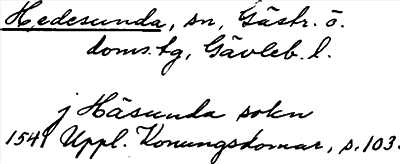 Hedesunda, sn, Gästr. ö.
doms.tg, Gävleb. l.
j Häsunda sokn
1541 Uppl. Konungsdomar, s. 103.